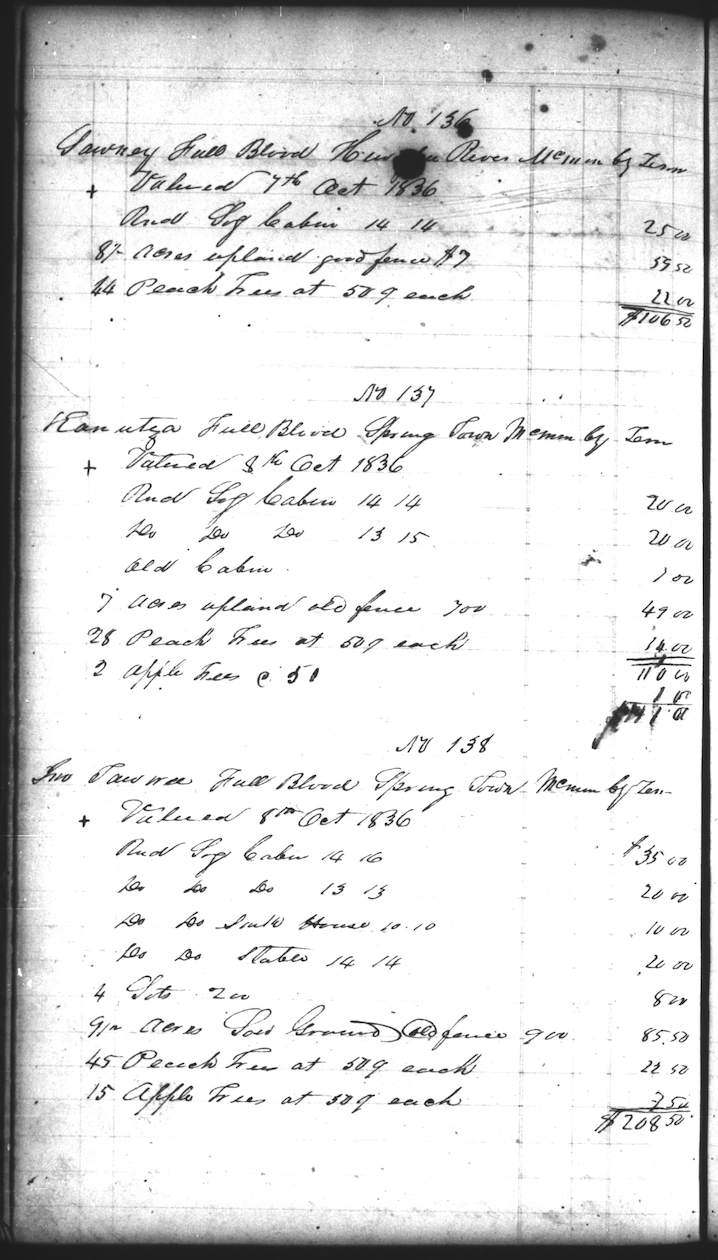 No 136
Sawney Full Blood River McMin Cy Tenn
+ Valued 7th Oct 1836
Rnd Log Cabin 14 14 25 00
8½ Acres upland good fence $7 59 50
44 Peach Trees at 50¢ each 22 00
$106 50
No 137
Kanutza Full Blood Spring Town McMin Cy Tenn
+ Valued 8th Oct 1836
Rnd Log Cabin 14 14 20 00
Do Do Do 13 15 20 00
Old Cabin 7 00
7 Acres upland old fence 700 49 00
28 Peach Trees at 50¢ each 14 00
110 00
2 Apple Trees @ 50 1 00
111 00
No 138
Jno Tawnee Full Blood Spring Town McMin Cy Ten
+ Valued 8th Oct 1836
Rnd Log Cabin 14 16 $35 00
Do Do Do 13 13 20 00
Do Do House 10.10 10 00
Do Do Stable 14 14 20 00
4 Lots 200 8 00
9½ Acres Low Ground old fence 900 85.50
45 Peach Trees at 50¢ each 22 50
15 Apple Trees at 50¢ each 7 50
$208 50